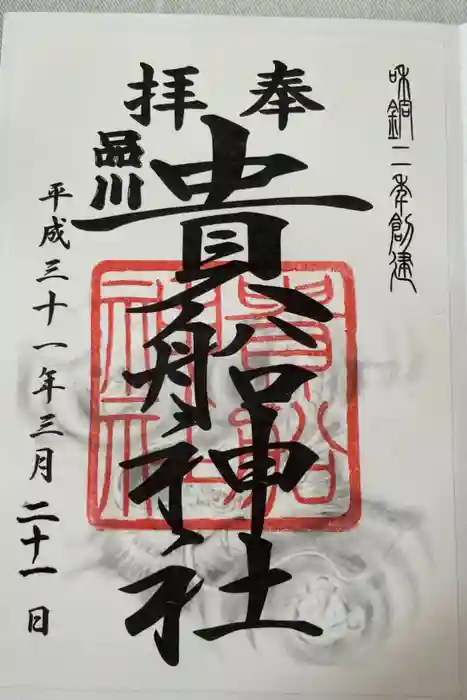 和銅二年創建
奉拝
品川
貴船神社
貴船神社
平成三十一年三月二十一日